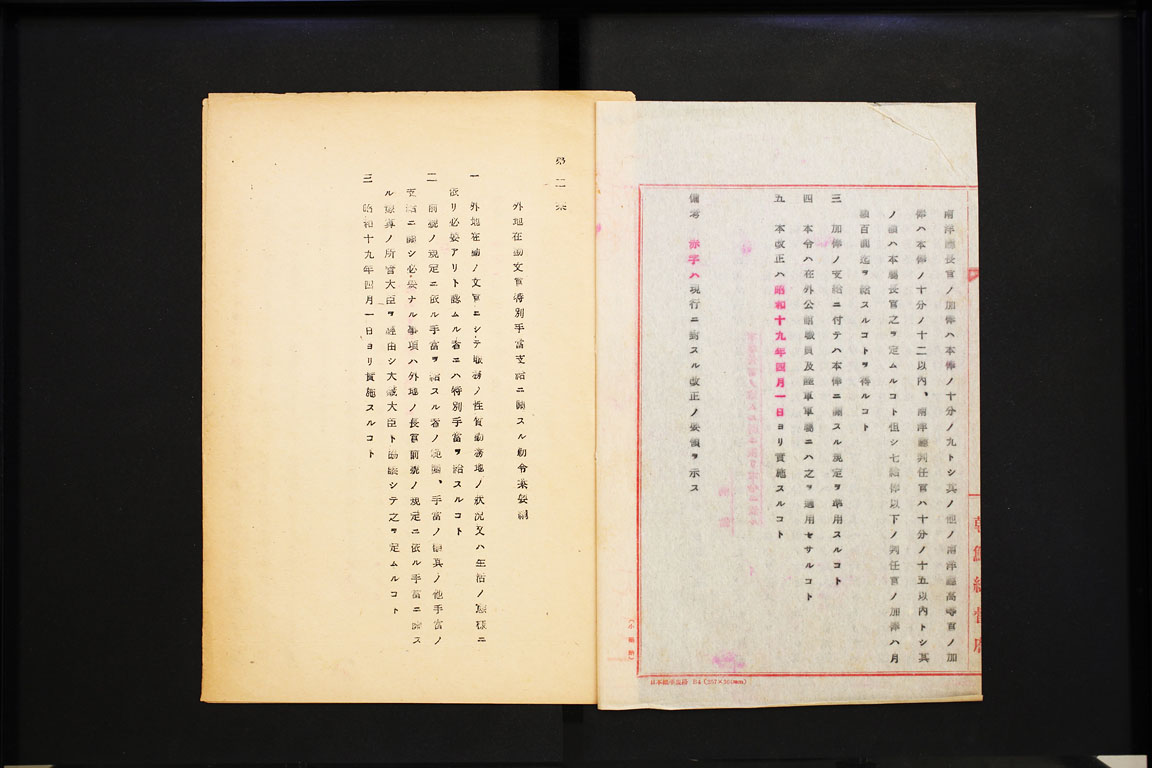 南洋廳長官ノ加俸ハ本俸ノ十分ノ九トシ其ノ他ノ南洋廳高等官ノ加
俸ハ本俸ノ十分ノ十二以內、南洋廳判任官ハ十分ノ十五以內トシ其
ノ額ハ本屬長官之ヲ定ムルコト但シ七給俸以下ノ判任官ノ加俸ハ月
額百圓迄ヲ給スルコトヲ得ルコト
三 加俸ノ支給ニ付テハ本俸ニ關スル規定ヲ準用スルコト
四 本令ハ在外公館職員及陸軍軍屬ニハ之ヲ適用セサルコト
五 本改正ハ昭和十九年四月一日ヨリ實施スルコト
備考 赤字ハ現行ニ對スル改正ノ要領ヲ示ス
朝鮮總督府
日本標準規格 B4(257×364mm)
第二案
外地在勤文官特別手當支給ニ關スル勅令案要綱
一 外地在勤ノ文官ニシテ職務ノ性質勤務地ノ狀況又ハ生活ノ態樣ニ
依リ必要アリト認ムル者ニハ特別手當ヲ給スルコト
二 前號ノ規定ニ依ル手當ヲ給スル者ノ範圍、手當ノ額其ノ他手當ノ
支給ニ關シ必要ナル事項ハ外地ノ長官前號ノ規定ニ依ル手當ニ關ス
ル豫算ノ所管大臣ヲ經由シ大藏大臣ト協議シテ之ヲ定ムルコト
三 昭和十九年四月一日ヨリ實施スルコト